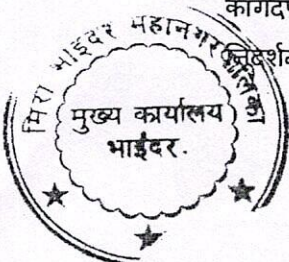 कागदप
निदर्शन
मिरा भाईंदर महानगरपालिका
मुख्य कार्यालय
भाईंदर.